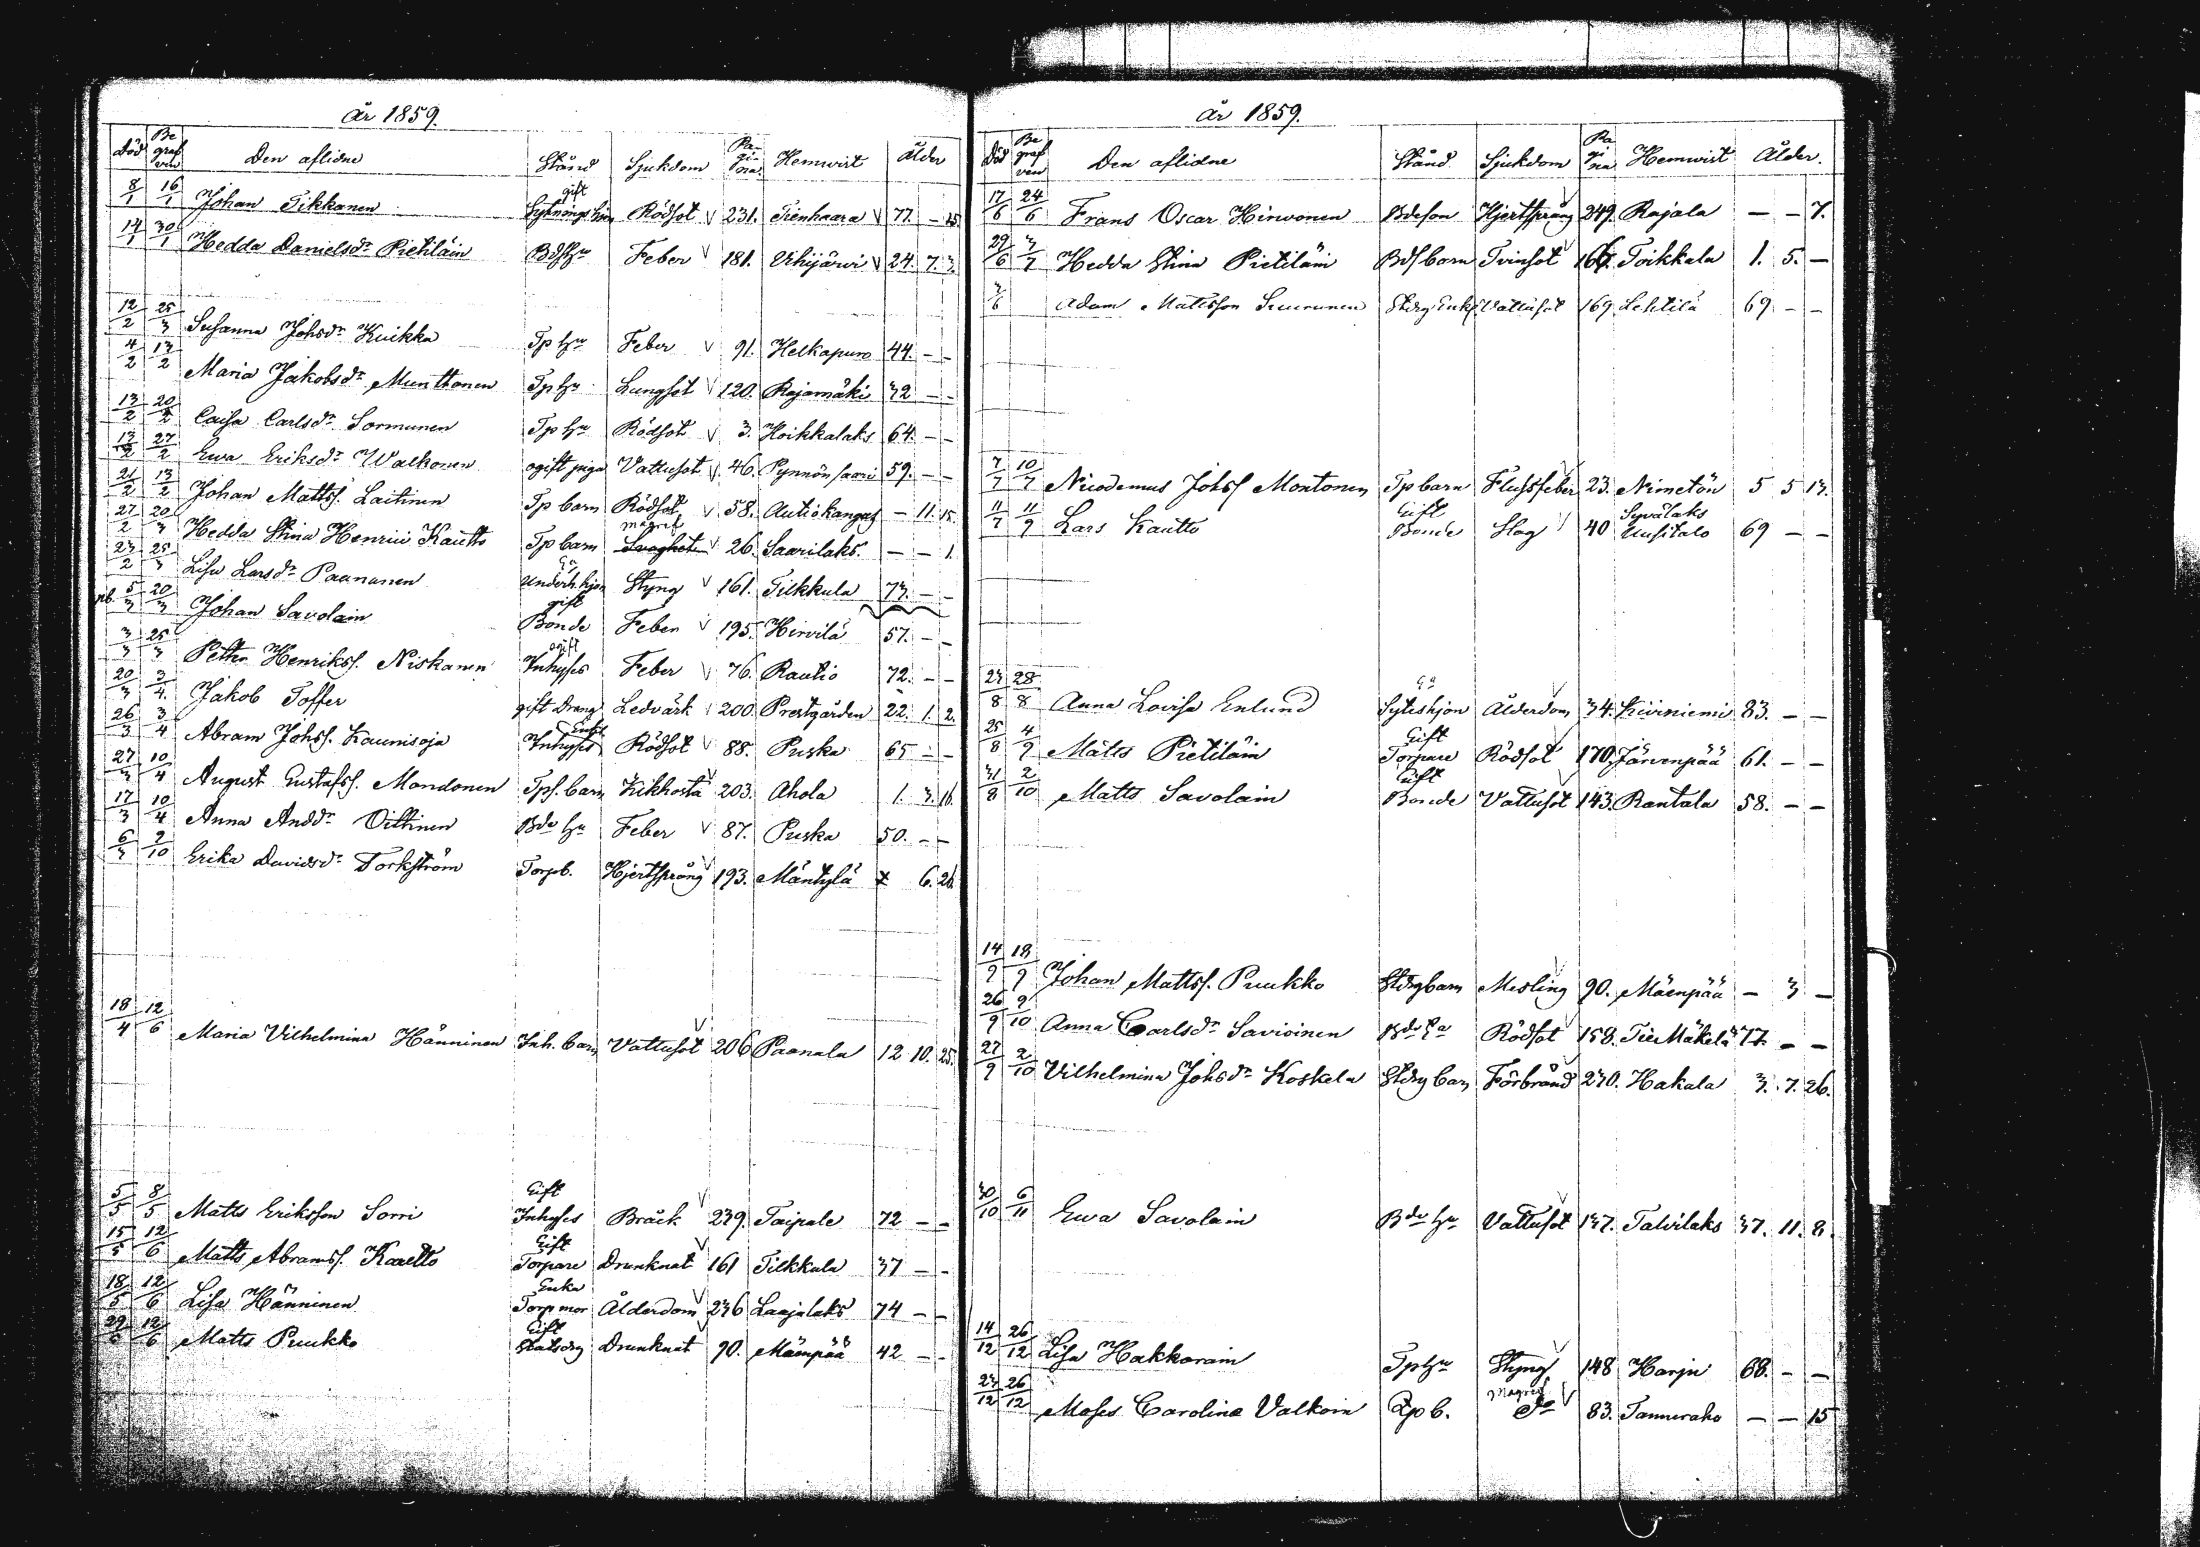 År 1859.
Död Begrafven Den aflidne Stånd Sjukdom Pagina Hemwist Ålder
8/1 16/1 Johan Tikkanen gift Sytningshjon Rödsot 231. Tienhaara 77. – 15
14/1 30/1 Hedda Danielsdr Pietiläin Bdhu Feber 181. Uhijärwi 24. 7. 3.
12/2 25/3 Susanna Johsdr Kuikka Tp hu Feber 91. Helkapuro 44. – –
4/2 13/2 Maria Jakobsdr Munthonen Tp hu Lungsot 120. Rajamäki 32 – –
13/2 20/2 Caisa Carlsdr Sormunen Tp hu Rödsot 3. Hoikkalaks 64. – –
13/2 27/2 Ewa Eriksdr Walkonen ogift piga Vattusot 46. Pynnönsaari 59. – –
21/2 13/2 Johan Mattss. Laitinen Tp barn Rödsot 58. Autiokangas – 11. 15.
27/2 20/3 Hedda Stina Henrici Kautto Tp barn mägref 26. Saarilaks. – – 1.
23/2 25/3 Lisa Larsdr Paananen Ea Underh. hjon Styng 161. Tilkkula 73. – –
5/3 20/3 Johan Savolain gift Bonde Feber 195. Hirvilä 57. – –
3/3 25/3 Petter Henrikss. Niskanen ogift Inhyses Feber 76. Rautio 72. – –
20/3 3/4. Jakob Toffer gift Dräng Ledvärk 200. Prestgården 22. 1. 2.
26/3 3/4 Abram Johss. Kaunisoja Enkl Inhyses Rödsot 88. Puska 65 – –
27/3 10/4 August Gustafss. Mondonen Tps. barn Kikhosta 203. Ahola 1. 3. 16.
17/3 10/4 Anna Andr Oittinen Bde hu Feber 87. Puska 50. – –
6/3 2/10 Erika Davidsdr Torkström Torpb. Hjertsprång 193. Mäntylä 6. 26.
18/4 12/6 Maria Vilhelmina Hänninen Inh. barn Vattusot 206 Paanala 12 10. 25.
5/5 8/5 Matts Eriksson Sorri Gift Inhyses Bråck 239. Taipale 72 – –
15/5 12/6 Matts Abramss. Kautto Gift Torpare Drunknat 161 Tilkkula 37 – –
18/5 12/6 Lisa Hänninen Enka Torp mor Ålderdom 236 Laajalaks 74 – –
29/5 12/6 Matts Puukko Gift Statsdrg Drunknat 90. Mäenpää 42 – –
År 1859.
Död Begrafven Den aflidne Stånd Sjukdom Pagina Hemwist Ålder.
17/6 24/6 Frans Oscar Hirvonen Bdeson Hjertsprång 249. Rajala – – 7.
29/6 3/7 Hedda Stina Pietiläin Bdsbarn Tvinsot 166. Toikkala 1. 5. –
Adam Mattsson Suurunen Stdrg Enkl Vattusot 169. Lehtilä 69 – –
7/7 10/7 Nicodemus Johss Montonen Tp barn Flussfeber 23. Nimetön 5 5 13.
11/7 11/9 Lars Kautto Gift Bonde Slag 40 Syvälaks Uusitalo 69 – –
23/8 28/8 Anna Lovisa Enlund Ea Syteshjon Ålderdom 34. Kivniemi 83. – –
25/8 4/9 Matts Pietiläin Gift Torpare Rödsot 170. Järvenpää 61. – –
31/8 2/10 Matts Savolain Gift Bonde Vattusot 143. Rantala 58. – –
14/9 18/9 Johan Mattss. Puukko Stdrgbarn Mesling 90. Mäenpää – 3 –
26/9 9/10 Anna Carlsdr Savioinen Bde Ea Rödsot 158. Tie Mäkelä 77. – –
27/9 2/10 Vilhelmina Johsdr Koskela Stdrg barn Förbränd 230. Hakala 3. 7. 26.
30/10 6/11 Ewa Savolain Bde hu Vattusot 137. Talvilaks 37. 11. 8.
14/12 26/12 Lisa Hakkarain Tp hu Styng 148 Harju 68. – –
23/12 26/12 Moses Carolina Valkoin Tp b. mägref do 83. Tanneraho – – 15